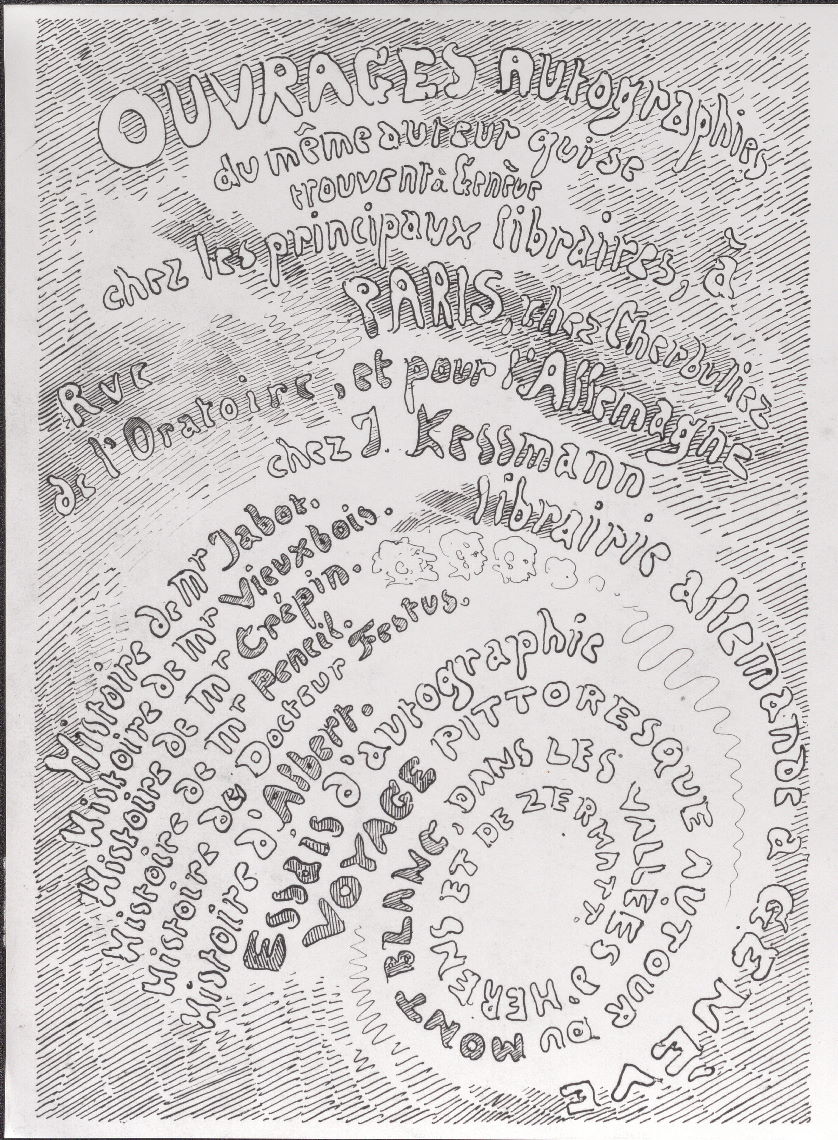 OUVRAGES Autographiés
du même auteur qui se
trouvent à Genève
chez les principaux libraires, à
PARIS, chez Cherbuliez
Rue
de l'Oratoire, et pour l'Allemagne
chez J. Kessmann
librairie allemande à GENÈVE
Histoire de Mr Jabot.
Histoire de Mr Vieuxbois.
Histoire de Mr Crépin.
Histoire de Mr Pencil.
Histoire de Docteur Festus.
Histoire d'Albert.
Essais d'autographie
VOYAGE PITTORESQUE AUTOUR DU MONT BLANC, DANS LES VALLÉES D'HERENS ET DE ZERMATT.